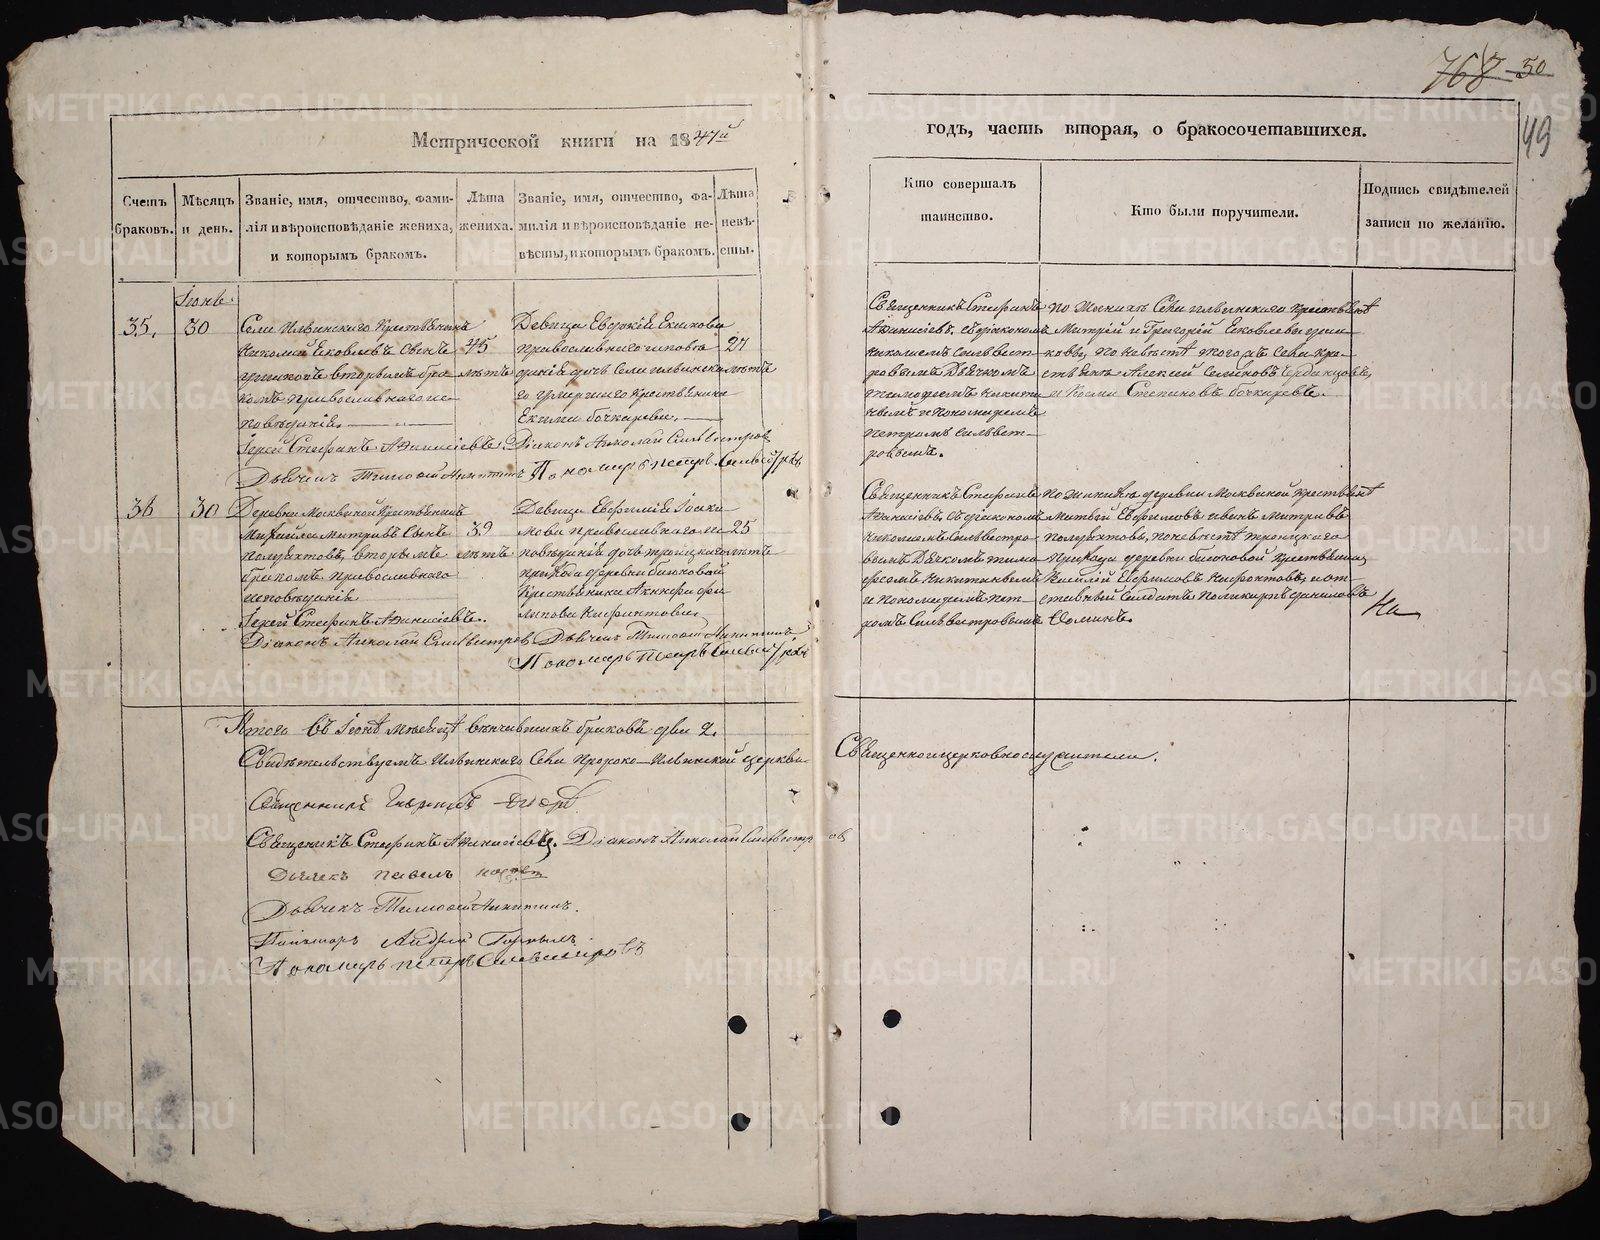 768 50
49
Метрической книги на 1847й
годъ, часть вторая, о бракосочетавшихся.
Счетъ браковъ.
Мѣсяцъ и день.
Званіе, имя, отчество, фамилія и вѣроисповѣданіе жениха, и которымъ бракомъ.
Лѣта жениха.
Званіе, имя, отчество, фамилія и вѣроисповѣданіе невѣсты, и которымъ бракомъ.
Лѣта невѣсты.
Кто совершалъ таинство.
Кто были поручители.
Подпись свидѣтелей записи по желанію.
Іюнь.
35. 30
Села Ильинскаго Крестьянинъ
Николай Яковлевъ Сынъ
вторымъ бра-
комъ православнаго ис-
повѣданія.
45
лѣтъ
Девица Евдокія Екимова
православнаго исповѣ-
данія дочь Села Ильинска-
го умершаго Крестьянина
Екима бочкарева.
27
лѣтъ
Іерей Стефанъ Аѳанасіевъ. Діаконъ Николай Сильвестровъ
Дьячекъ Тимоѳей Никитинъ Пономарь Петръ Сильвестровъ
Священникъ Стефанъ
Аѳанасіевъ, съ діакономъ
Николаемъ Сильвест-
ровымъ Дьячкомъ
Тимоѳеемъ Никити-
нымъ и Пономаремъ
Петромъ Сильвест-
ровымъ.
По Женихѣ Села ильинскаго Крестьянѣ
Митрій и Григорій Яковлевы
по невѣстѣ тогожъ Села кре-
стьяне Алексій Семеновъ
и Косма Степановъ бочкаревъ.
36 30
Деревни Москвиной Крестьянинъ
Михайло Митріевъ Сынъ
Полуяхтовъ, вторымъ
бракомъ православнаго
исповѣданія
39
лѣтъ
Девица Евфимія Іоаки-
мова православнаго ис-
повѣданія дочь троицкаго
прихода деревни биюковой
Крестьянина
25
лѣтъ
Іерей Стефанъ Аѳанасіевъ.
Діаконъ Николай Сильвестровъ Дьячекъ Тимоѳей Никитинъ
Пономарь Петръ Сильвестровъ
Священникъ Стефанъ
Аѳанасіевъ, съ діакономъ
Николаемъ Сильвестро-
вымъ Дьячкомъ Тимо-
ѳеемъ Никитинымъ
и Пономаремъ Пет-
ромъ Сильвестровымъ
По Женихѣ деревни Москвиной Крестьянѣ
Матвей Ефимовъ Иванъ Митріевъ
Полуяхтовы, по невѣстѣ троицкаго
прихода деревни биюковой Крестьянинъ
Василій Ефимовъ и от-
ставный Солдатъ Поликарпъ Даниловъ
Ѳоминъ.
На
Итого въ Іюнѣ мѣсяцѣ вѣнчавшихъ браковъ два 2.
Свидѣтельствуемъ Ильинскаго Села Пророко-Ильинской церкви
Священноицерковнослужители.
Священникъ
Священникъ Стефанъ Аѳанасіевъ. Діаконъ Николай Сильвестровъ
Дьячекъ Павелъ
Дьячекъ Тимоѳей Никитинъ.
Пономарь Андрей
Пономарь Петръ Сильвестровъ
METRIKI.GASO-URAL.RU